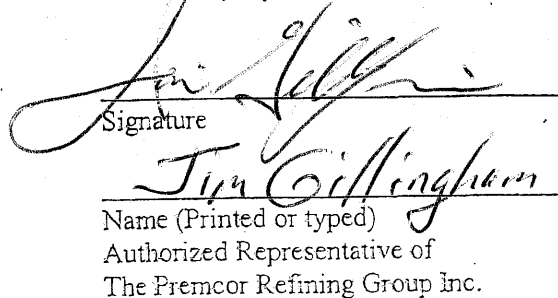 Jim Gillingham
Signature
Jim Gillingham
Name (Printed or typed)
Authorized Representative of
The Premcor Refining Group Inc.